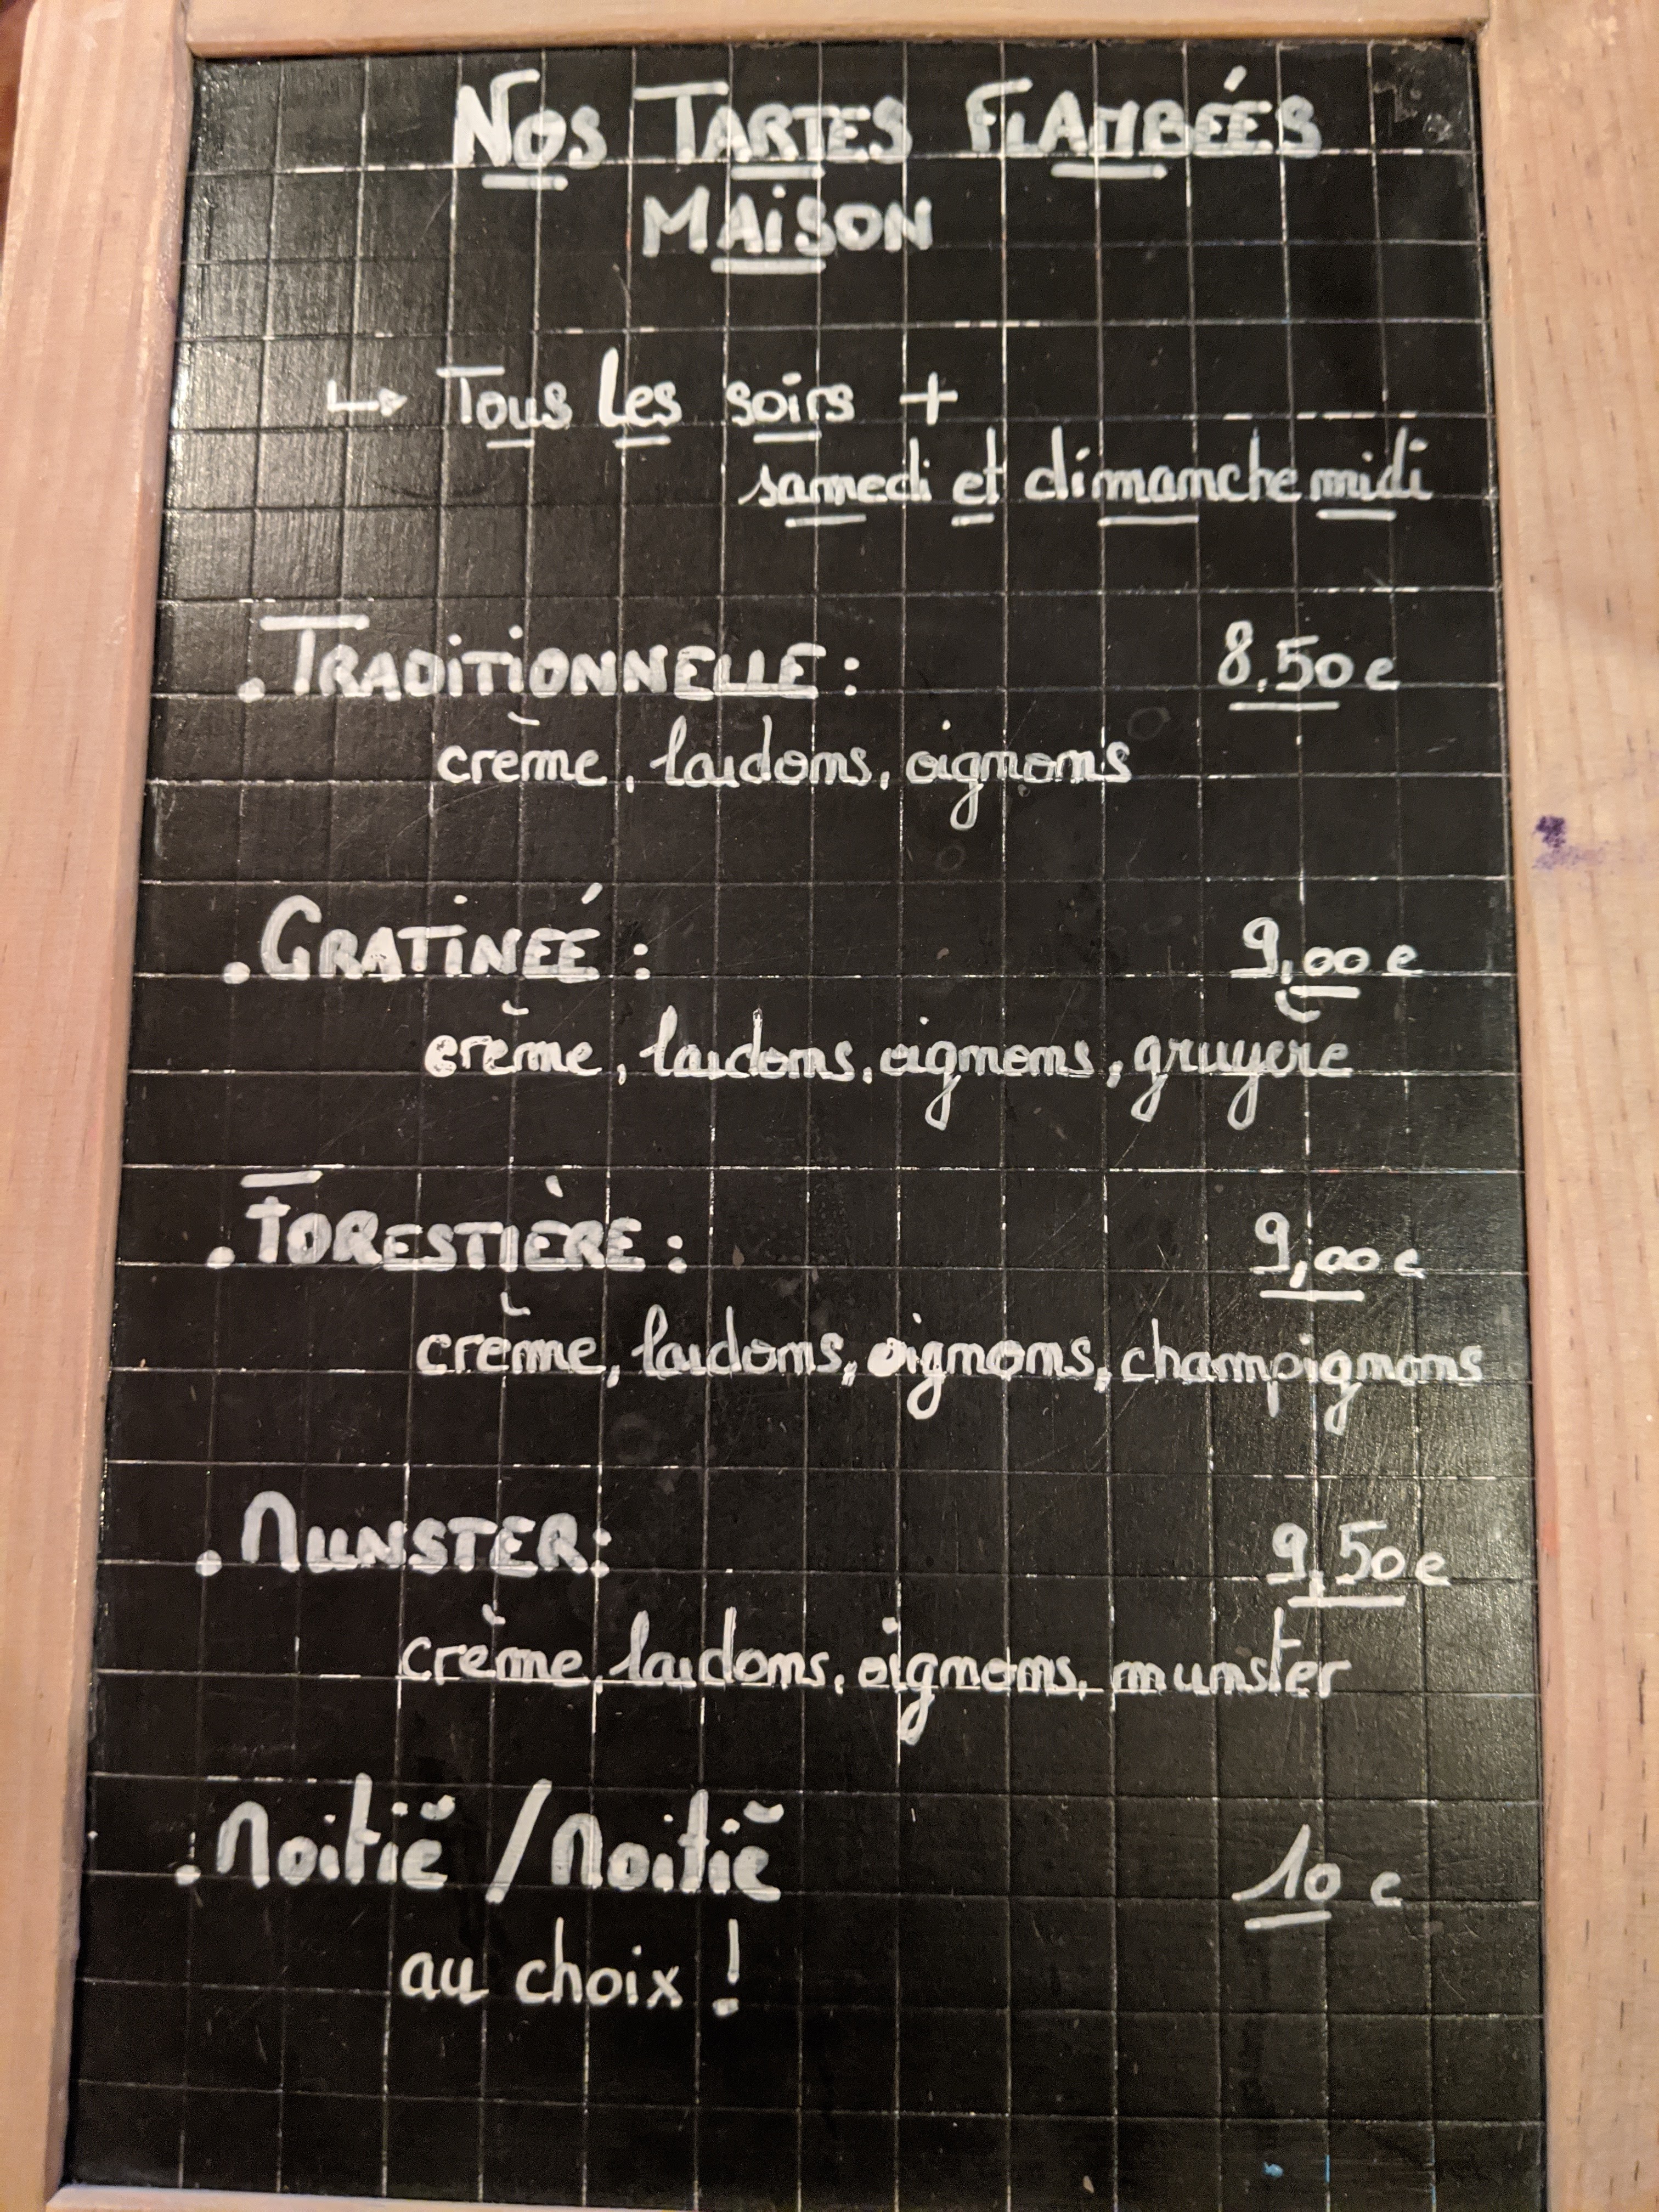 NOS TARTES FLAMBÉES
MAISON
↳ Tous les soirs +
samedi et dimanche midi
. TRADITIONNELLE : 8,50 €
crème, lardons, oignons
. GRATINÉE : 9,00 €
crème, lardons, oignons, gruyère
. FORESTIÈRE : 9,00 €
crème, lardons, oignons, champignons
. MUNSTER : 9,50 €
crème, lardons, oignons, munster
. Moitié / Moitié 10 €
au choix !